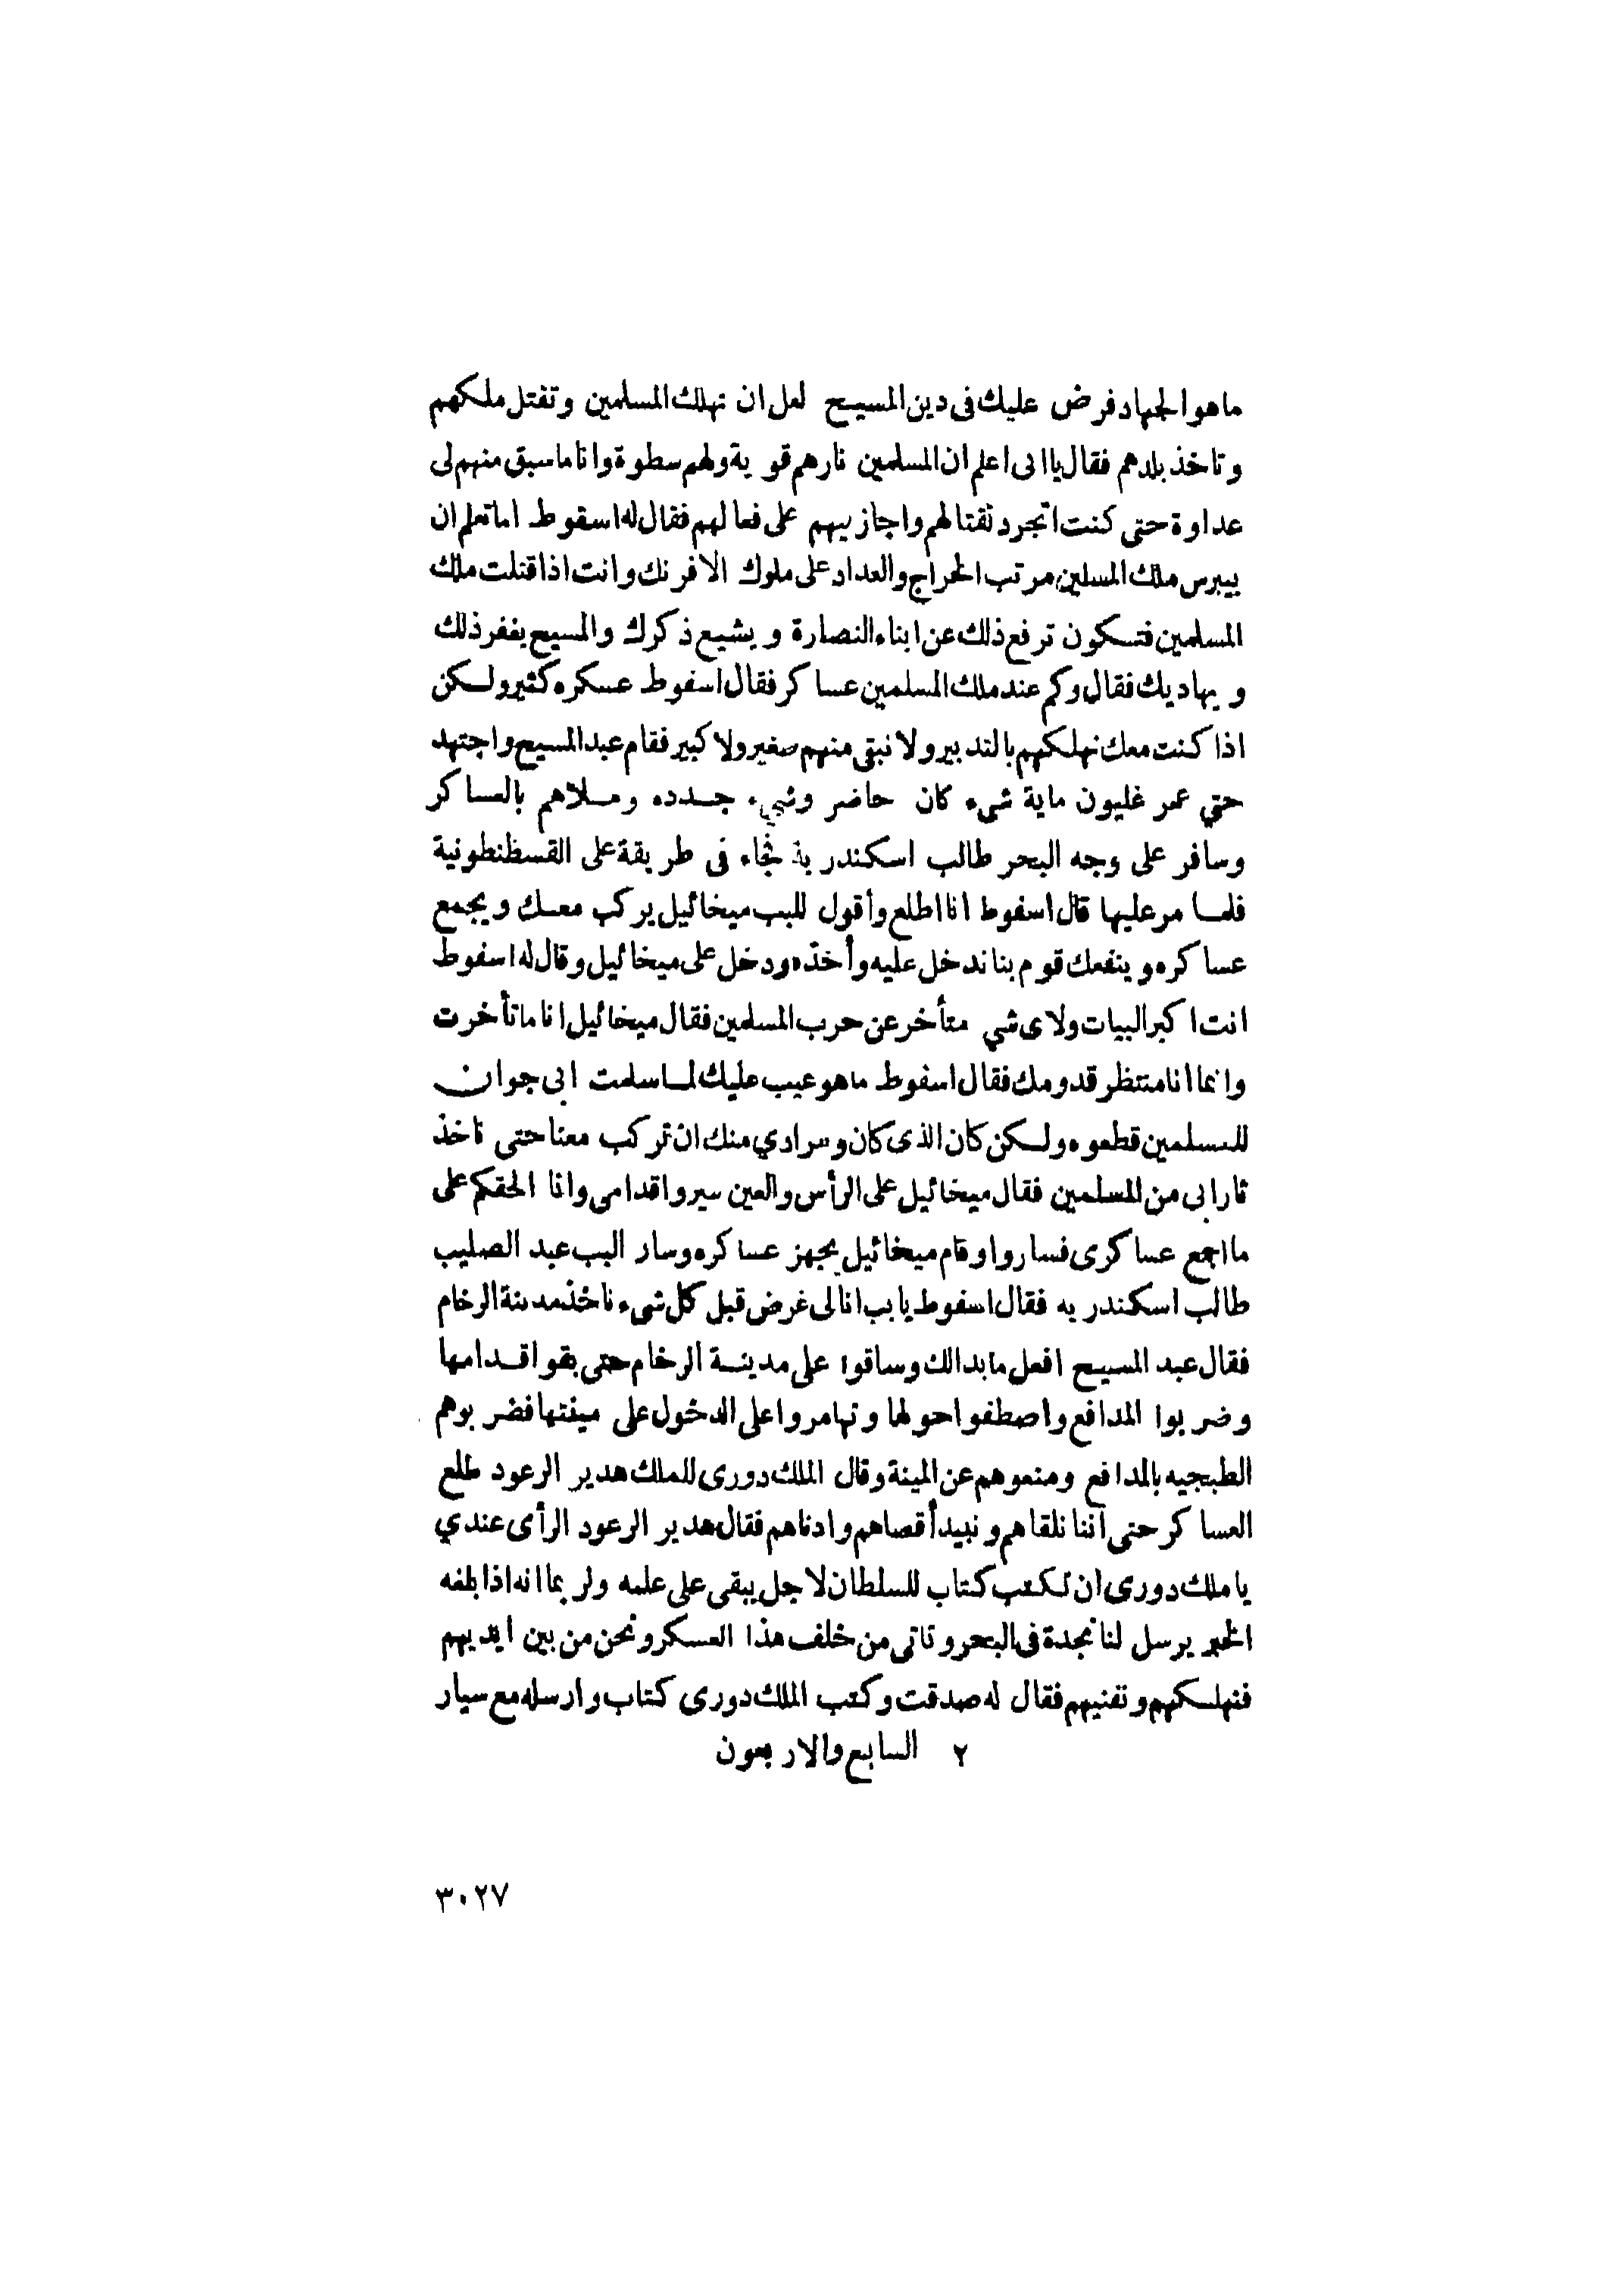 ما هو الجهاد فرض عليك فى دين المسيح لعل ان تهلك المسلمين وتقتل ملكهم
وتاخذ بلدهم فقال يا ابى اعلم ان المسلمين نارهم قوية ولهم سطوة وانا ما سبق منهم لى
عداوة حتى كنت اتجرد لقتالهم واجازيهم على فعالهم فقال له اسقوط اما تعلم ان
بيبرس ملك المسلمين مرتب الخراج والعداد على ملوك الافرنك وانت اذا قتلت ملك
المسلمين فتكون ترفع ذلك عن ابناء النصارة ويشيع ذكرك والمسيح يغفر ذلك
ويهاديك فقال وكم عند ملك المسلمين عساكر فقال اسفوط عسكره كثير ولكن
اذا كنت معك نهلكهم بالتدبير ولا نبقى منهم صغير ولا كبير فقام عبد المسيح واجتهد
حتي عمر غليون ماية شىء كان حاضر وشىء جدده وملاهم بالعساكر
وسافر على وجه البحر طالب اسكندرية فجاء فى طريقة على القسظنطونية
فلما مر عليها قال اسفوط انا اطلع وأقول للبب ميخائيل يركب معك ويجمع
عساكره وينفعك قوم بنا ندخل عليه وأخذه ودخل على ميخائيل وقال له اسفوط
انت اكبر البيات ولاى شي متأخر عن حرب المسلمين فقال ميخائيل انا ما تأخرت
وانما انا منتظر قدومك فقال اسفوط ما هو عيب عليك لما سلمت ابى جوان
للمسلمين قطعوه ولكن كان الذى كان ومرادي منك ان تركب معنا حتى ناخذ
ثار ابى من المسلمين فقال ميخائيل على الرأس والعين سيروا قدامى وانا الحقكم على
ما اجمع عساكرى فساروا وقام ميخائيل يجهز عساكره وسار البب عبد الصليب
طالب اسكندريه فقال اسفوط يا بب انا لى غرض قبل كل شىء ناخذ مدينة الرخام
فقال عبد المسيح افعل ما بدالك وساقوا على مدينة الرخام حتى بقوا قدامها
وضربوا المدافع واصطفوا حولها وتهامروا على الدخول على مينتها فضربوهم
الطبجيه بالمدافع ومنعوهم عن المينة وقال الملك دورى للملك هدير الرعود طلع
العساكر حتى اننا نلقاهم ونبيد أقصاهم وادناهم فقال هدير الرعود الرأى عندي
يا ملك دورى ان تكتب كتاب للسلطان لاجل يبقى على علمه ولربما انه اذا بلغه
الخبر يرسل لنا نجدة فى البحر وتاتى من خلف هذا العسكر ونحن من بين ايديهم
فنهلكهم وتفنيهم فقال له صدقت وكتب الملك دورى كتاب وارسله مع سيار
٢ السابع والاربعون
٣٠٢٧